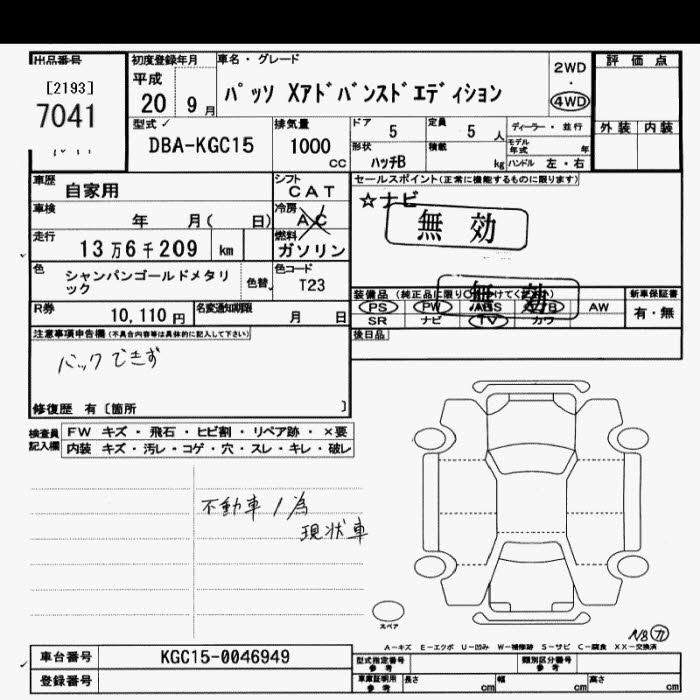 出品番号
[2193]
7041
初度登録年月
平成
20 9月
車名・グレード
パッソ Xアドバンスドエディション
2WD
4WD
評価点
外装 内装
型式
DBA-KGC15
排気量
1000
CC
ドア
5
定員
5 人
形状
ハッチB
積載
kg
ディーラー・並行
モデル年式 年
ハンドル 左・右
車歴
自家用
シフト
CAT
車検
年 月( 日)
冷房
AC
走行
13万6千209 km
燃料
ガソリン
色
シャンパンゴールドメタリック
色替
色コード
T23
R券
10,110 円
名変通知期限
月 日
セールスポイント(正常に機能するものに限ります)
☆ナビ
無効
無効
装備品
PS PW ABS AW
SR ナビ TV カワ
新車保証書
有・無
後日品
注意事項申告欄(不具合内容等は具体的に記入して下さい)
バックできず
修復歴 有〔箇所 〕
検査員記入欄
FW キズ・飛石・ヒビ割・リペア跡・×要
内装 キズ・汚レ・コゲ・穴・スレ・キレ・破レ
不動車ノ為
現状車
スペア
N8 カ
A-キズ E-エクボ U-凹み W-補修跡 S-サビ C-腐食 XX-交換済
車台番号
KGC15-0046949
登録番号
型式指定番号
参考
類別区分番号
参考
車庫証明用
参考
長さ cm 幅 cm 高さ cm